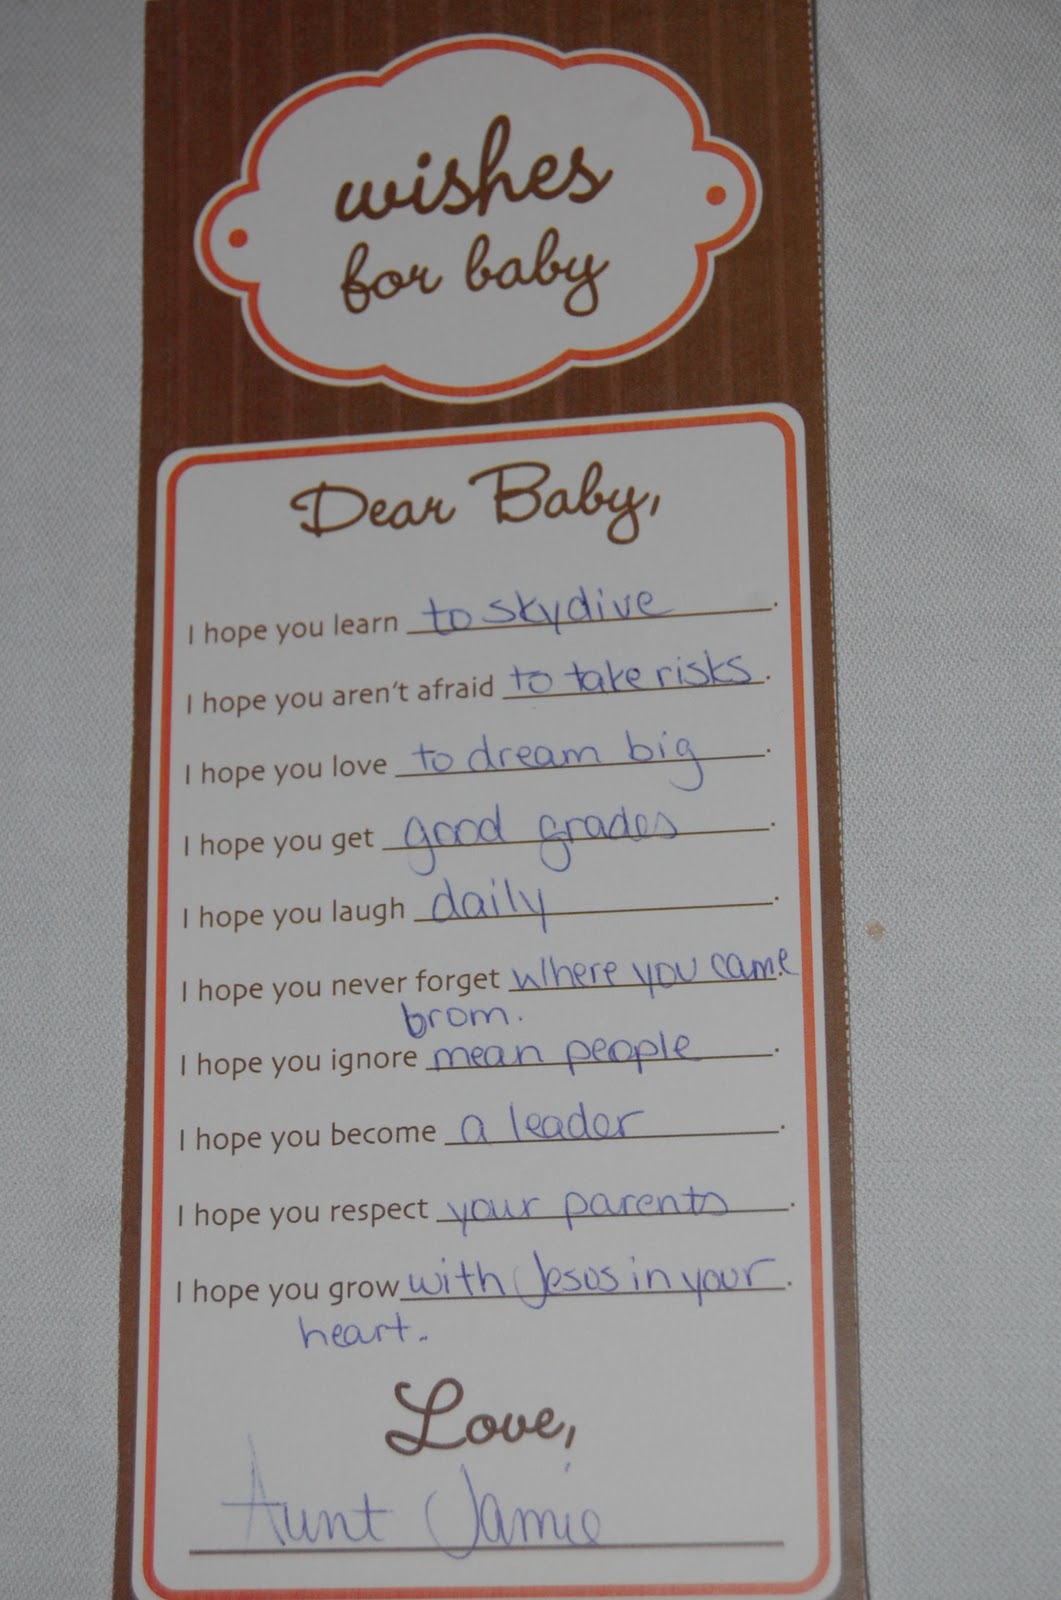 wishes
for baby
Dear Baby,
I hope you learn to skydive.
I hope you aren't afraid to take risks.
I hope you love to dream big.
I hope you get good grades.
I hope you laugh daily.
I hope you never forget where you came
brom.
I hope you ignore mean people.
I hope you become a leader.
I hope you respect your parents.
I hope you grow with Jesus in your.
heart.
Love,
Aunt Jamie